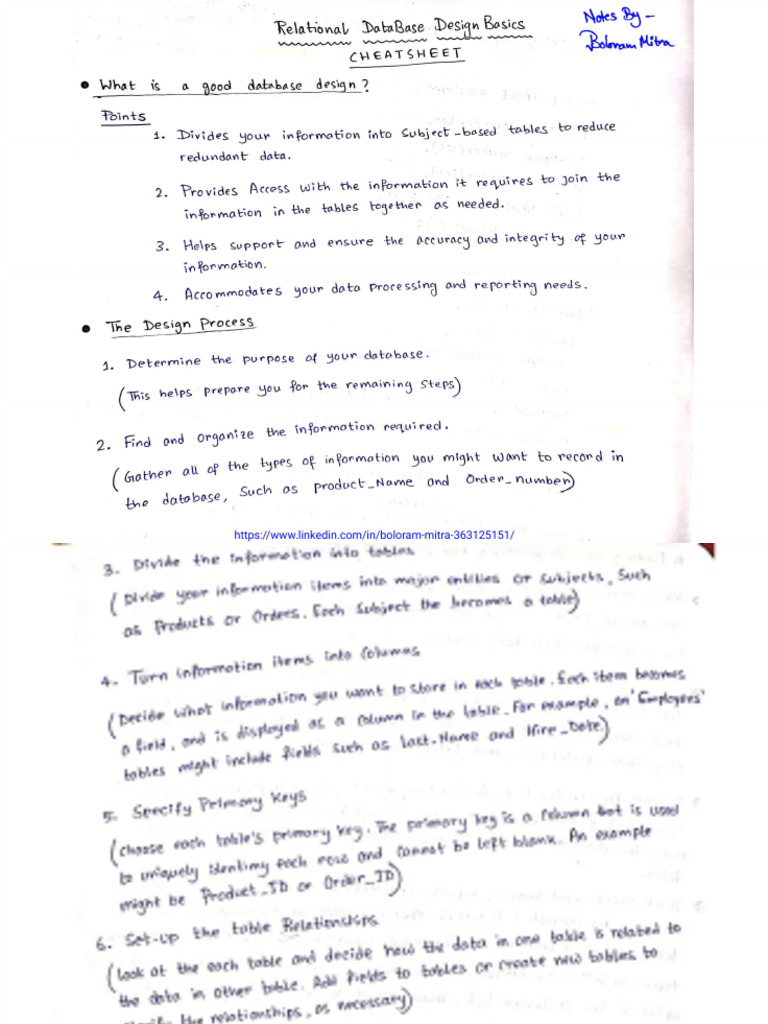 Relational DataBase Design Basics
CHEATSHEET
Notes By -
Boloram Mitra
• What is a good database design?
Points
1. Divides your information into subject-based tables to reduce
redundant data.
2. Provides Access with the information it requires to join the
information in the tables together as needed.
3. Helps support and ensure the accuracy and integrity of your
information.
4. Accommodates your data processing and reporting needs.
• The Design Process
1. Determine the purpose of your database.
(This helps prepare you for the remaining steps)
2. Find and organize the information required.
(Gather all of the types of information you might want to record in
the database, Such as product_Name and Order_number)
https://www.linkedin.com/in/boloram-mitra-363125151/
3. Divide the information into tables
(Divide your information items into major entities or subjects, Such
as Products or Orders. Each Subject the becomes a table)
4. Turn information items into Columns
(Decide what information you want to store in each table. Each item becomes
a field, and is displayed as a column in the table. For example, an 'Employees'
tables might include fields such as Last_Name and Hire_Date)
5. Specify Primary Keys
(choose each table's primary key. The primary key is a column that is used
to uniquely identify each row and cannot be left blank. An example
might be Product_ID or Order_ID)
6. Set-up the table Relationships
(look at the each table and decide how the data in one table is related to
the data in other table. Add fields to tables or create new tables to
the relationships, as necessary)